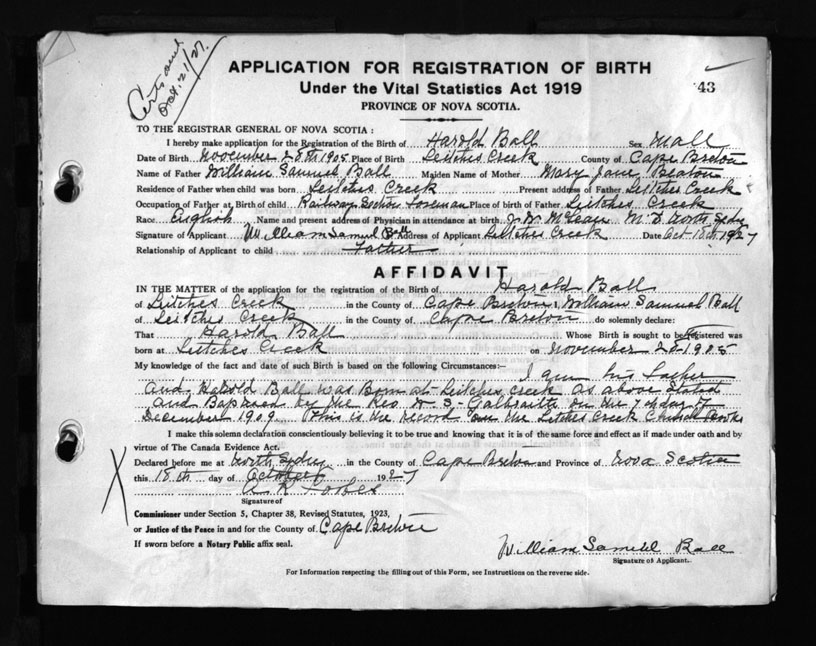 Certs and
Oct. 21/27.
APPLICATION FOR REGISTRATION OF BIRTH
Under the Vital Statistics Act 1919
43
PROVINCE OF NOVA SCOTIA.
TO THE REGISTRAR GENERAL OF NOVA SCOTIA :
I hereby make application for the Registration of the Birth of Harold Ball Sex Mall
Date of Birth November 28th 1905 Place of Birth Leitches Creek County of Cape Breton
Name of Father William Samuel Ball Maiden Name of Mother Mary Jane Beaton
Residence of Father when child was born Leitches Creek Present address of Father Leitches Creek
Occupation of Father at Birth of child Railway Section Foreman Place of birth of Father Leitches Creek
Race English Name and present address of Physician in attendance at birth J. W. McLean M. D North Sydney
Signature of Applicant William Samuel Ball Address of Applicant Leitches Creek Date Oct 18th 1927
Relationship of Applicant to child Father
AFFIDAVIT
IN THE MATTER of the application for the registration of the Birth of Harold Ball
of Leitches Creek in the County of Cape Breton I, William Samuel Ball
of Leitches Creek in the County of Cape Breton do solemnly declare:
That Harold Ball Whose Birth is sought to be registered was
born at Leitches Creek on November 28 1905
My knowledge of the fact and date of such Birth is based on the following Circumstances:— I am his Father
And Harold Ball was Born at Leitches Creek as above Stated
and Baptised by the Rev. A S- Galbraith on the 7th day of
December 1909. This is the Record on the Leitches Creek Church Books
I make this solemn declaration conscientiously believing it to be true and knowing that it is of the same force and effect as if made under oath and by
virtue of The Canada Evidence Act.
Declared before me at North Sydney in the County of Cape Breton and Province of Nova Scotia
this 18th day of October 1927
Signature of
Commissioner under Section 5, Chapter 38, Revised Statutes, 1923,
or Justice of the Peace in and for the County of Cape Breton
If sworn before a Notary Public affix seal.
William Samuell Ball
Signature of Applicant.
For Information respecting the filling out of this Form, see Instructions on the reverse side.